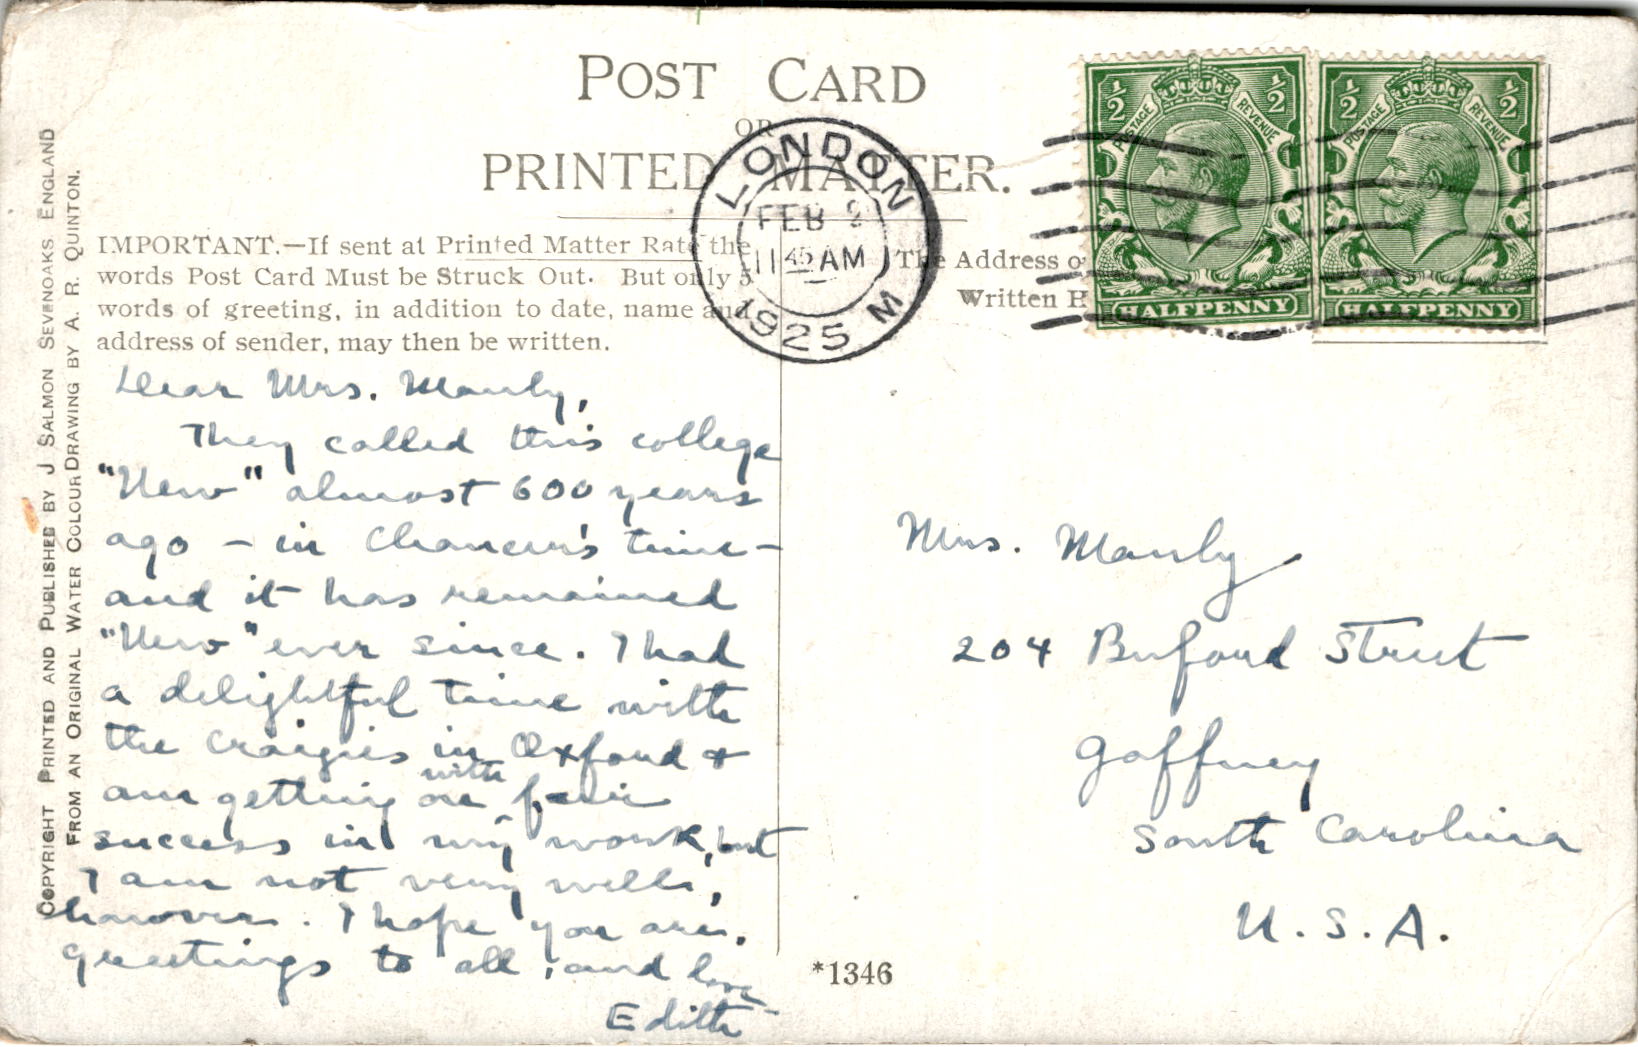 POST CARD
OR
PRINTED MATTER.
IMPORTANT.—If sent at Printed Matter Rate the
words Post Card Must be Struck Out. But only 5
words of greeting, in addition to date, name and
address of sender, may then be written.
The Address o
Written
LONDON
FEB
11 45 AM
1925 M
½ ½
POSTAGE REVENUE
HALFPENNY
½ ½
POSTAGE REVENUE
HALFPENNY
COPYRIGHT PRINTED AND PUBLISHED BY J SALMON SEVENOAKS ENGLAND
FROM AN ORIGINAL WATER COLOUR DRAWING BY A. R. QUINTON.
Dear Mrs. Manly,
They called this college
"New" almost 600 years
ago – in Chaucer's time –
and it has remained
"New" ever since. I had
a delightful time with
the Craigies in Oxford &
am getting on with fair
success in my work, but
I am not very well,
however. I hope you are.
Greetings to all, and love
Edith
Mrs. Manly
204 Buford Street
Gaffney
South Carolina
U.S.A.
*1346